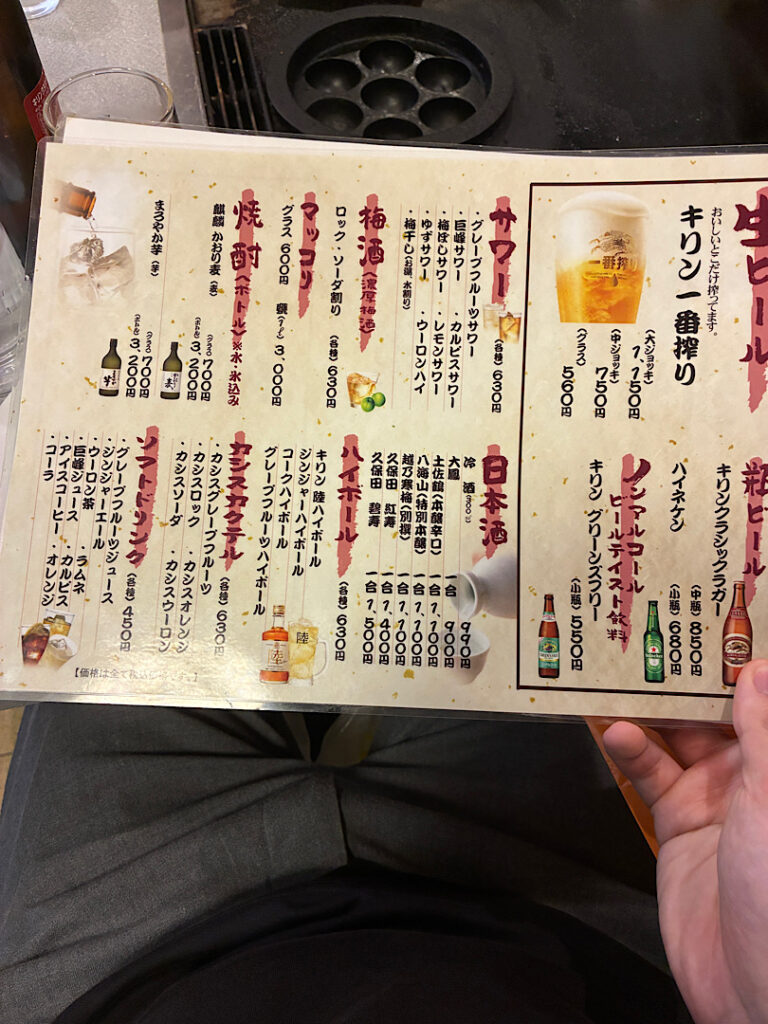 生ビール
おいしいとこだけ搾ってます。
キリン一番搾り
一番搾り
(大ジョッキ) 1,150円
(中ジョッキ) 750円
(グラス) 560円
瓶ビール
キリンクラシックラガー (中瓶) 850円
ハイネケン (小瓶) 680円
ノンアルコール
ビールテイスト飲料
キリン グリーンズフリー (小瓶) 550円
サワー (各種) 630円
・グレープフルーツサワー
・巨峰サワー ・カルピスサワー
・梅ぼしサワー ・レモンサワー
・ゆずサワー ・ウーロンハイ
・梅干し(お湯、水割り)
梅酒(濃厚梅酒)
ロック・ソーダ割り (各種) 630円
マッコリ
グラス 600円 甕(1ℓ) 3,000円
焼酎(ボトル)※水・氷込み
麒麟 かおり麦(麦) (グラス) 700円
(ボトル) 3,200円
まろやか芋(芋) (グラス) 700円
(ボトル) 3,200円
日本酒
冷酒(300㎖) 990円
大鵬 一合 900円
土佐鶴(本醸辛口) 一合 1,100円
八海山(特別本醸) 一合 1,100円
越乃寒梅(別撰) 一合 1,100円
久保田 紅寿 一合 1,400円
久保田 碧寿 一合 1,500円
ハイボール (各種) 630円
キリン 陸ハイボール
ジンジャーハイボール
コークハイボール
グレープフルーツハイボール
陸
カシスカクテル (各種) 630円
・カシスグレープフルーツ
・カシスロック ・カシスオレンジ
・カシスソーダ ・カシスウーロン
ソフトドリンク (各種) 450円
・グレープフルーツジュース
・ジンジャーエール
・ウーロン茶
・巨峰ジュース ・ラムネ
・アイスコーヒー ・カルピス
・コーラ ・オレンジ
【価格は全て税込価格です。】